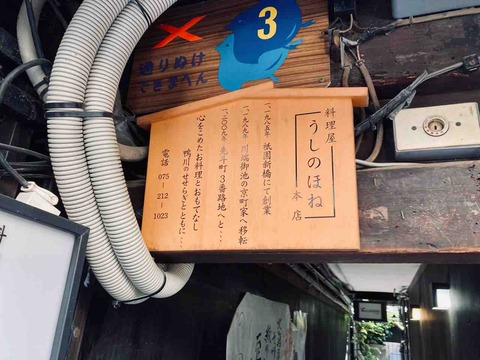 3
通りぬけ
できまへん
料理屋
うしのほね
本店
一、一九八五年、祇園新橋にて創業
一、一九八九年、川端御池の京町家へ移転
一、二〇〇九年、先斗町3番路地へと、、
心をこめたお料理とおもてなし
鴨川のせせらぎとともに、、
電話 075-212-1023